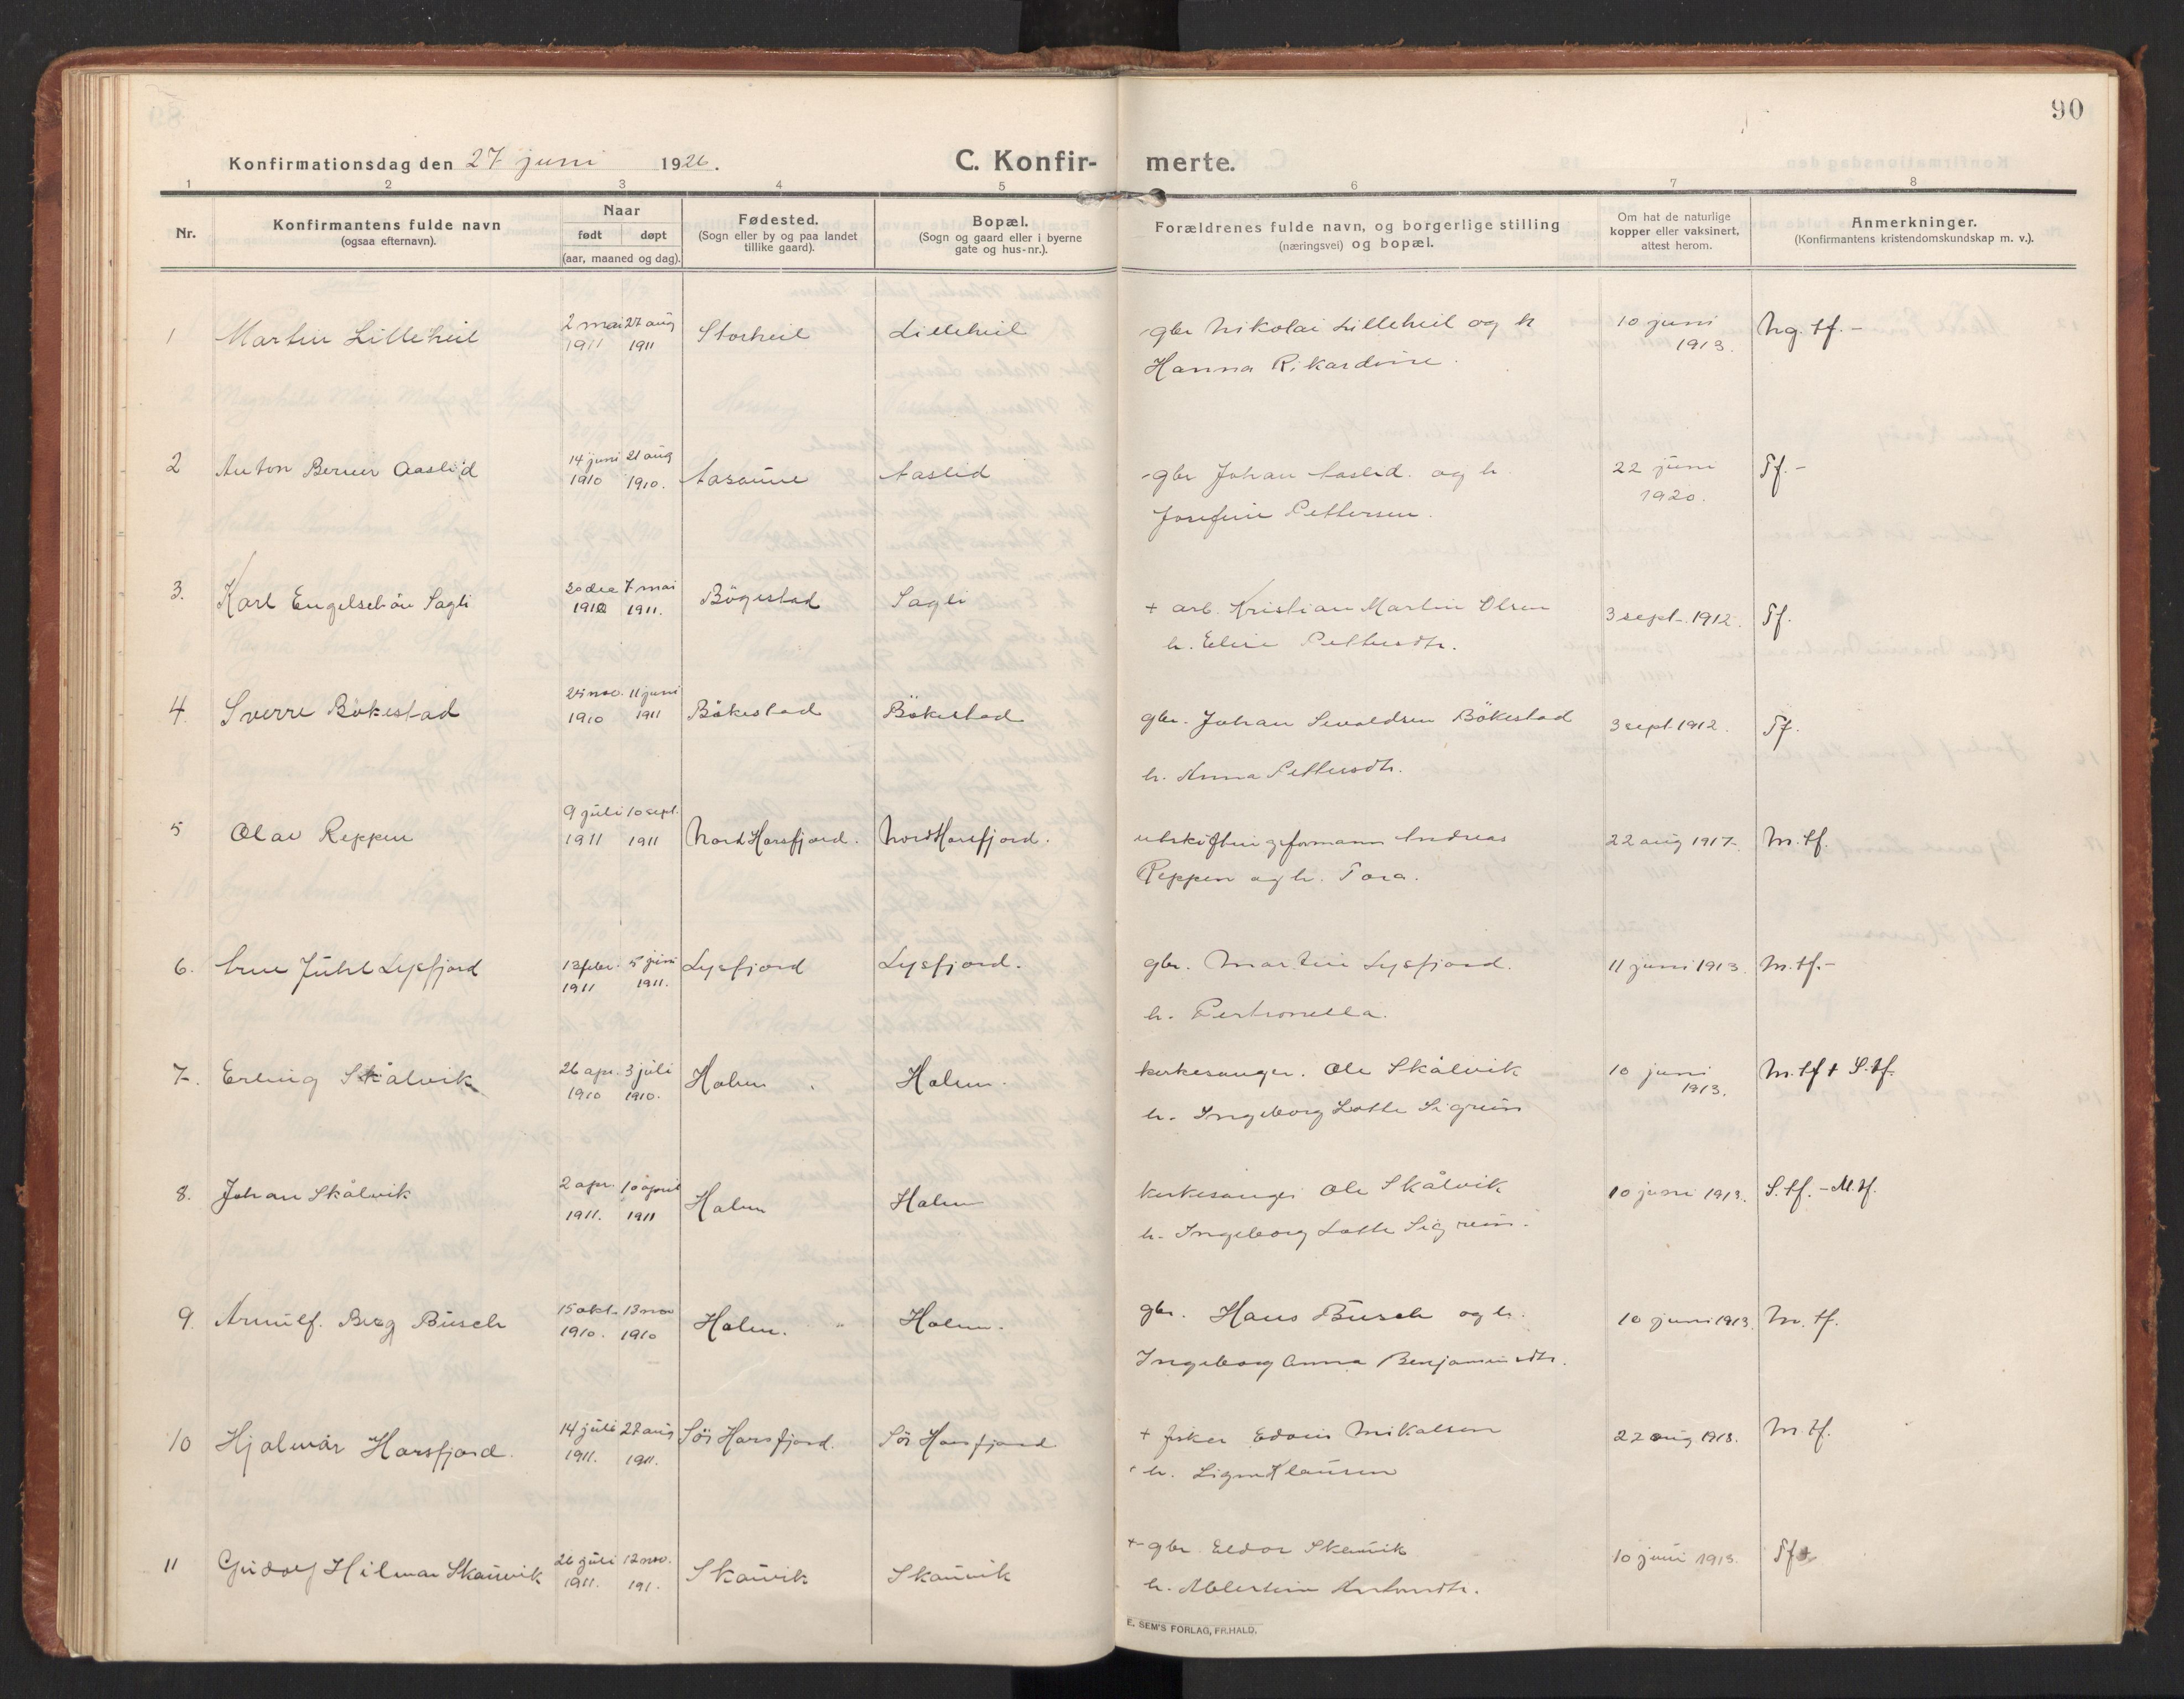 90
Konfirmationsdag den 27 juni 1926. C. Konfir- merte.
1 2 3 4 5 6 7 8
Nr. Konfirmantens fulde navn (ogsaa efternavn). Naar født døpt (aar, maaned og dag). Fødested. (Sogn eller by og paa landet tillike gaard). Bopæl. (Sogn og gaard eller i byerne gate og hus-nr.). Forældrenes fulde navn, og borgerlige stilling (næringsvei) og bopæl. Om hat de naturlige kopper eller vaksinert, attest herom. Anmerkninger. (Konfirmantens kristendomskundskap m. v.).
1 Martin Lilleheil 2 mai 1911 27 aug 1911 Storheil Lilleheil gbr Nikolai Lilleheil og h 10 juni 1913. Ng. tf. -
Hanna Rikardine.
2 Anton Berner Aaslid 14 juni 1910 21 aug 1910. Aasaune Aaslid gbr Johan Aaslid og h. 22 juni 1920. Tf. -
Josefine Pettersen.
3. Karl Engelsehön Sagli 30 dec 1910 7 mai 1911. Bögestad Sagli + arb. Kristian Martin Olsen 3 sept. 1912. Tf.
h. Eline Pettersdtr.
4. Sverre Bökestad 24 nov. 1910 11 juni 1911 Bökestad Bökestad gbr. Johan Sevaldsen Bökestad 3 sept 1912. Tf.
h. Anna Pettersdtr.
5 Olav Reppen 9 juli 1911 10 sept. 1911 Nord Harsfjord. Nord Harsfjord. utskiftningsformann Andreas 22 aug 1917. M. tf.
Reppen og h. Tora.
6. Arne Juhl Lysfjord 13 febr. 1911 5 juni 1911. Lysfjord Lysfjord. gbr. Martin Lysfjord. 11 juni 1913. M. tf. -
h. Pertronella.
7. Erling Skålvik 26 apr. 1910 3 juli 1910. Holm Holm. kirkesanger. Ole Skålvik 10 juni 1913. M. tf + S. tf.
h. Ingeborg Lotte Sigrun
8. Johan Skålvik 2 apr. 1911. 10 april 1911 Holm Holm kirkesanger Ole Skålvik 10 juni 1913. S. tf. - M. tf.
h. Ingeborg Lotte Sigrun.
9. Arnulf. Berg Busch 15 okt. 1910. 13 nov 1910 Holm. " Holm. gbr. Hans Busch og h. 10 juni 1913. M. tf.
Ingeborg Anna Benjaminsdtr.
10 Hjalmar Harsfjord. 14 juli 1911. 27 aug 1911. Sör Harsfjord. Sör Harsfjord + fisker Edvin Mikalsen 22 aug 1918. M. tf.
h. Klausen
11 Gudolf Hilmar Skauvik 26 juli 1911. 12 nov. 191. Skauvik Skauvik + gbr Eldor Skauvik 10 juni 1913. Tf
h. Albertine Antonsdtr.
E. SEM'S FORLAG, FR.HALD.